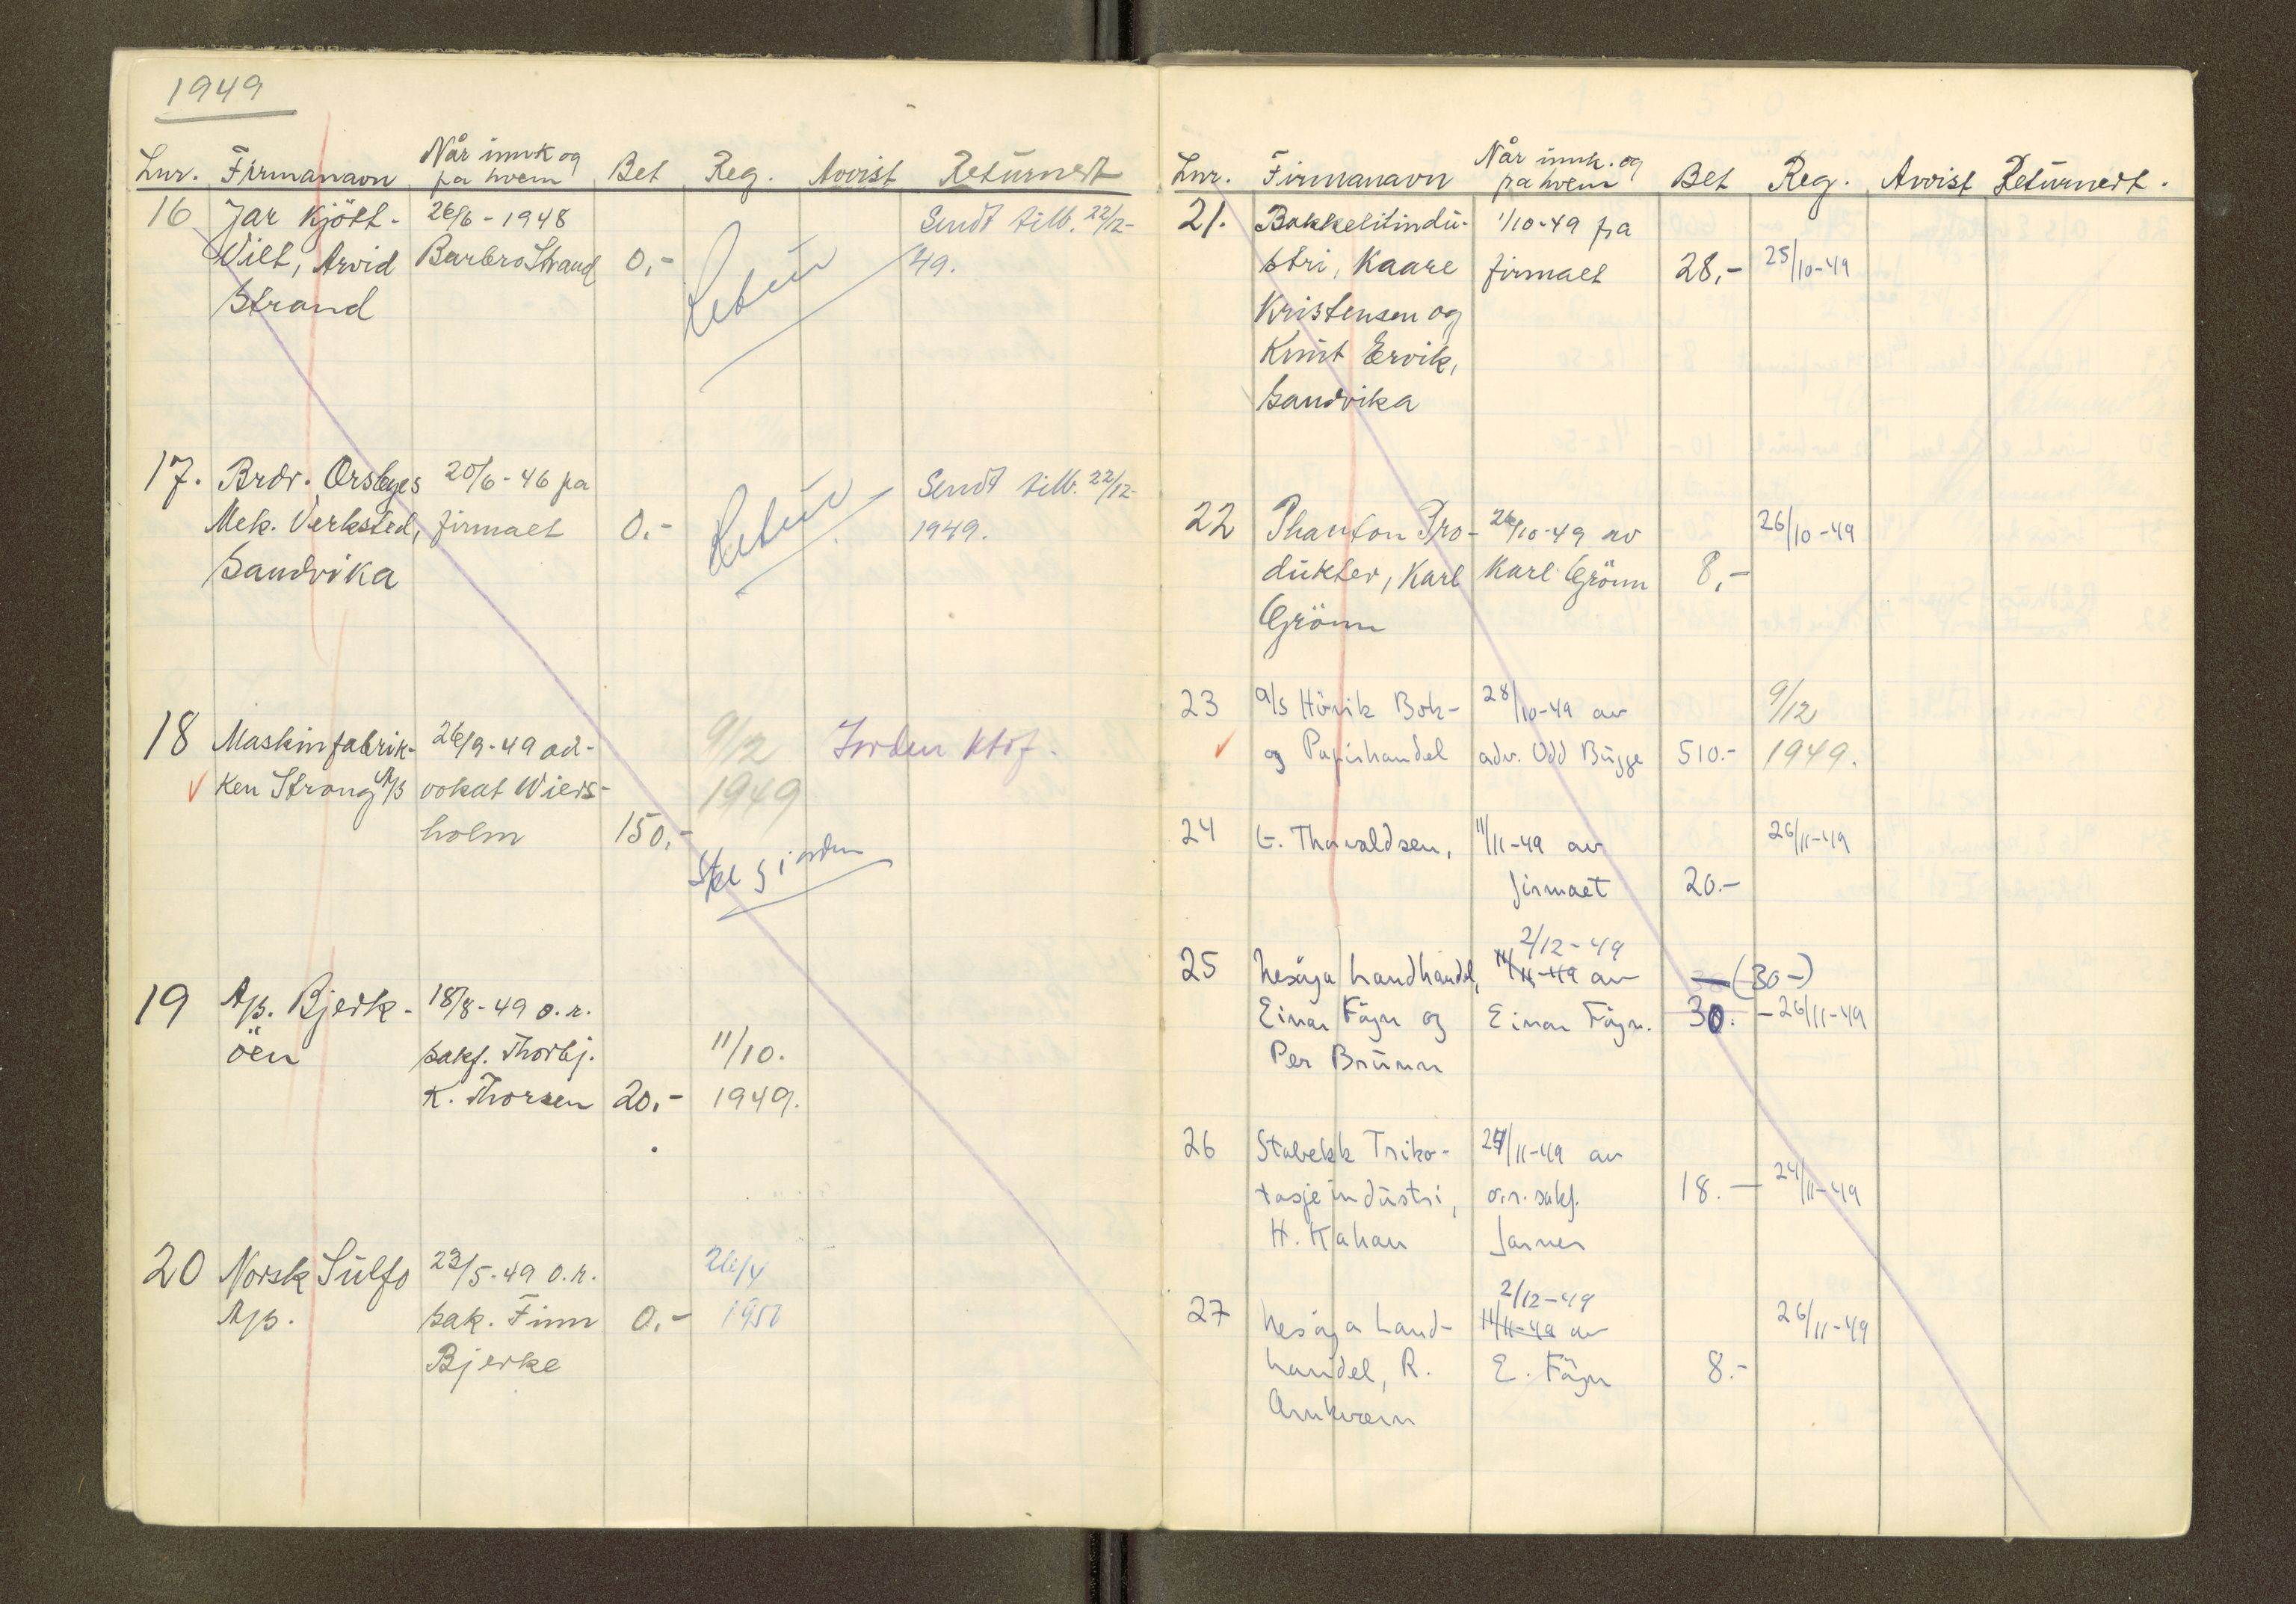 1949
Lnr. Firmanavn Når innk og på hvem Bet Reg. Avvist Returnert
16 Jar Kjött- 26/6 - 1948 Sendt tilb. 22/12-
Vilt, Arvid Barbro Strand 0,- Retur 49.
Strand
17. Brdr. Orsbyes 20/6 - 46 fra Sendt tilb. 22/12-
Mek. Verksted, firmaet 0.- Retur 1949.
Sandvika
18 Maskinfabrik- 26/9 - 49 ad- 9/12 Jorden
ken Strong A/S vokat Wiers- 1949
holm 150,-
i orden
19 A/S. Bjerk- 18/8 - 49 o.r.
öen sakf. Thorbj. 11/10.
K. Thorsen 20,- 1949.
20 Norsk Sulfo 23/5 - 49 o.r. 26/4
A/S. sak. Finn 0,- 1950
Bjerke
Lnr. Firmanavn Når innk. og på hvem Bet Reg. Avvist Returnert.
21. Bakkelitindu- 1/10-49 fra
stri, Kaare firmaet 28,- 25/10-49
Kristensen og
Knut Ervik,
Sandvika
22 Phanton Pro- 26/10-49 av 26/10-49
dukter, Karl Karl Grönn 8,-
Grönn
23 a/s Hövik Bok- 28/10-49 av 9/12
og Papirhandel adv. Odd Bugge 510.- 1949.
24 E. Thorvaldsen, 11/11-49 av 26/11-49
firmaet 20.-
2/12-49
25 Nesöya Landhandel, 11/11-49 av (30-)
Einar Föyn og Einar Föyn. 30.- 26/11-49
Per Brunn
26 Stabekk Triko- 24/11-49 av
tasjeindustri, o.r. sakf. 18.- 24/11-49
H. Kahan Jarner
2/12-49
27 Nesöya Land- 11/11-49 av 26/11-49
handel, R. E. Föyn 8.-
Arnkværn